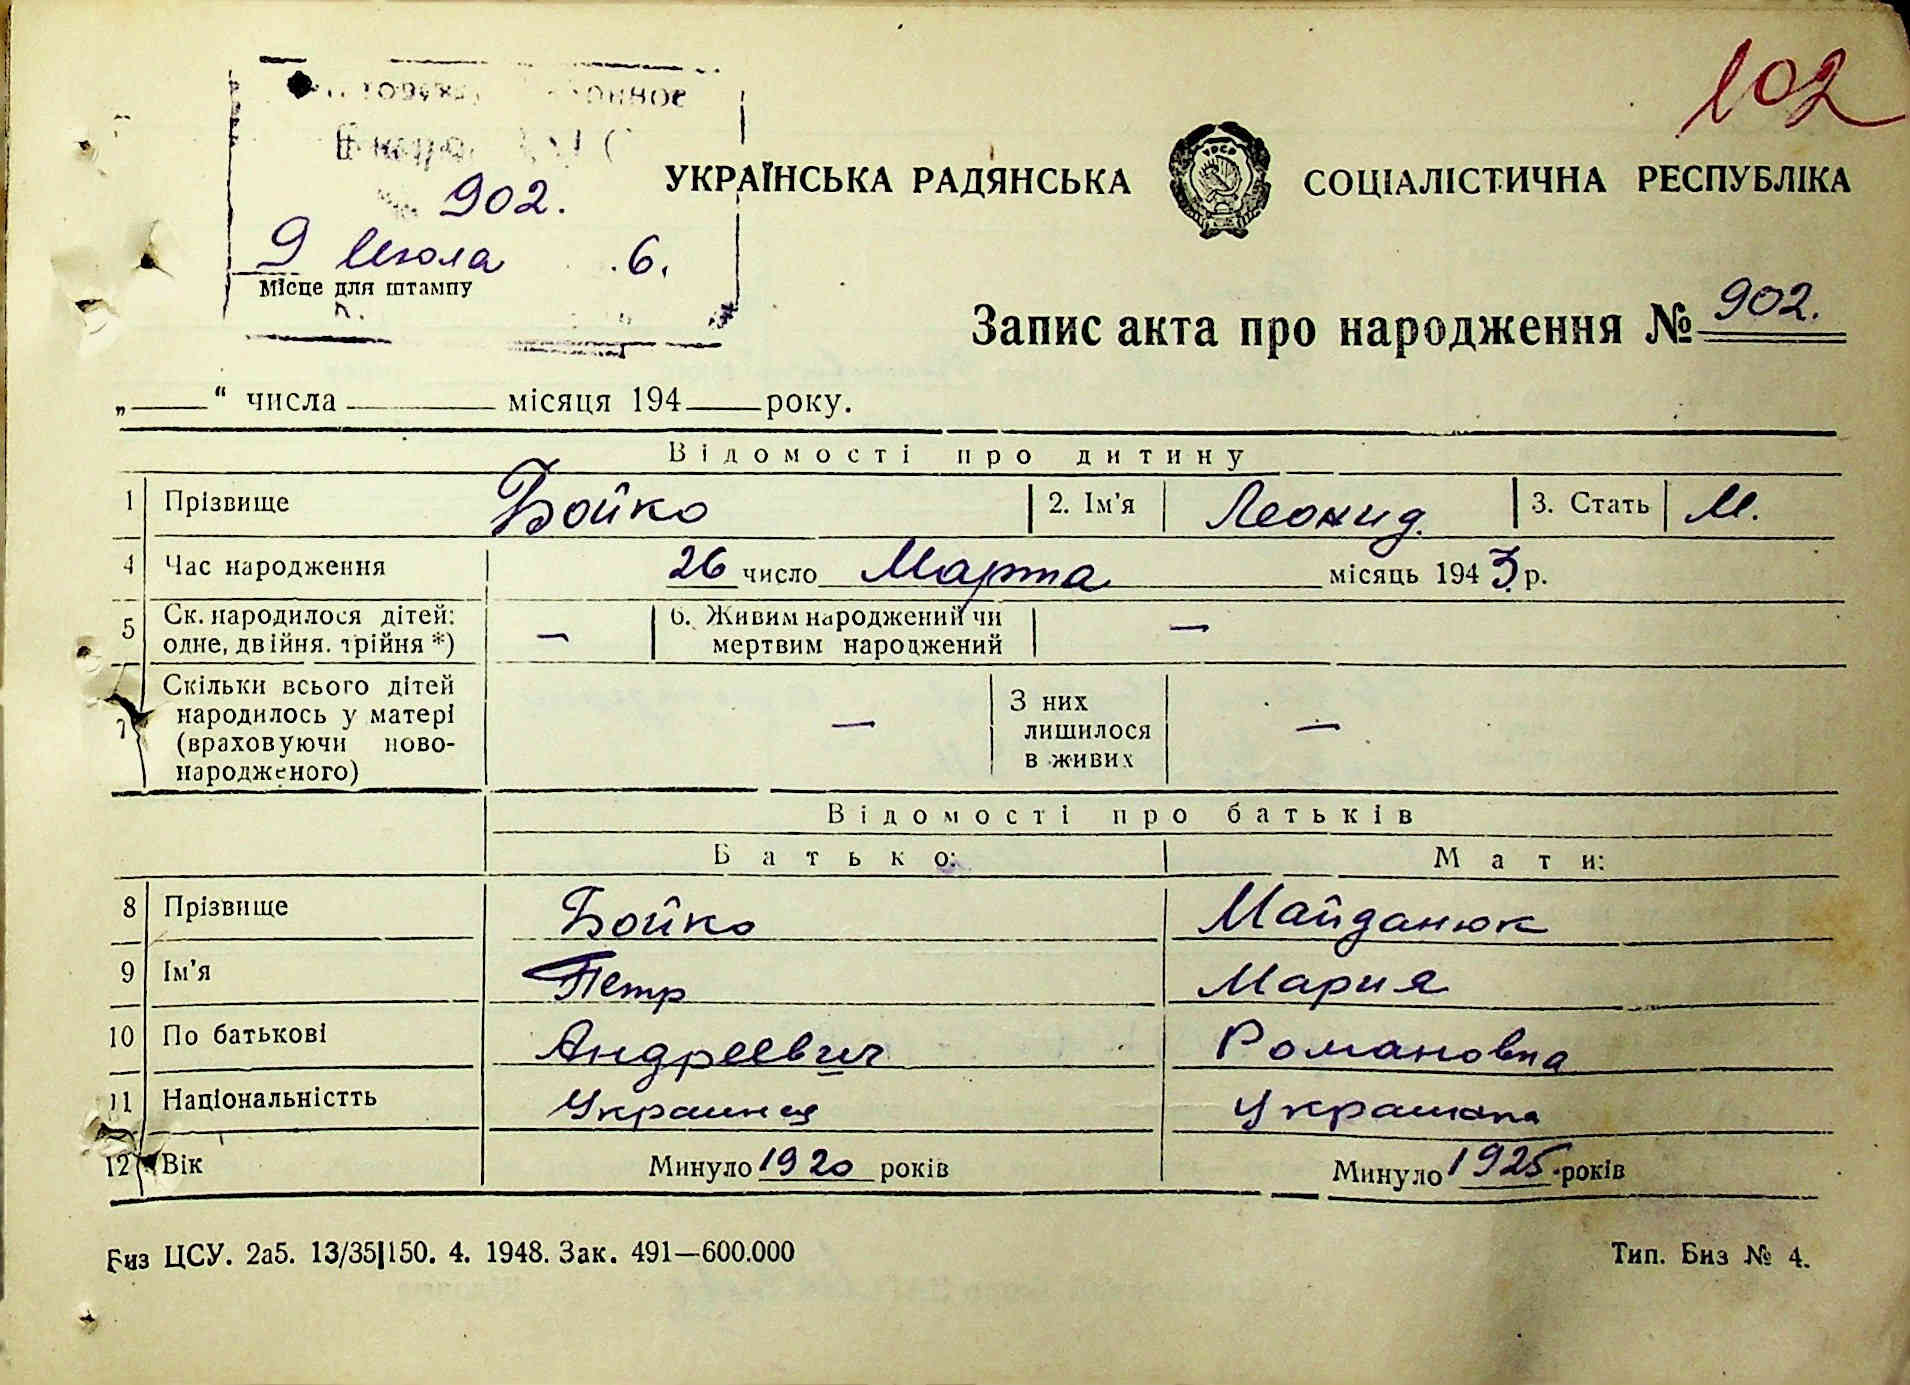 102
902.
9 Июля 6.
Місце для штампу
УКРАЇНСЬКА РАДЯНСЬКА СОЦІАЛІСТИЧНА РЕСПУБЛІКА
УРСР
Запис акта про народження № 902.
„ “ числа місяця 194 року.
Відомості про дитину
1 Прізвище Бойко 2. Ім'я Леонид. 3. Стать М.
4 Час народження 26 число Марта місяць 1943 р.
5 Ск. народилося дітей: — 6. Живим народжений чи —
одне, двійня. трійня *) мертвим народжений
7 Скільки всього дітей — З них —
народилось у матері лишилося
(враховуючи ново- в живих
народженого)
Відомості про батьків
Батько: Мати:
8 Прізвище Бойко Майданюк
9 Ім'я Петр Мария
10 По батькові Андреевич Романовна
11 Національністть Украинец Украинка
12 Вік Минуло 1920 років Минуло 1925 років
Биз ЦСУ. 2а5. 13/35|150. 4. 1948. Зак. 491—600.000 Тип. Биз № 4.